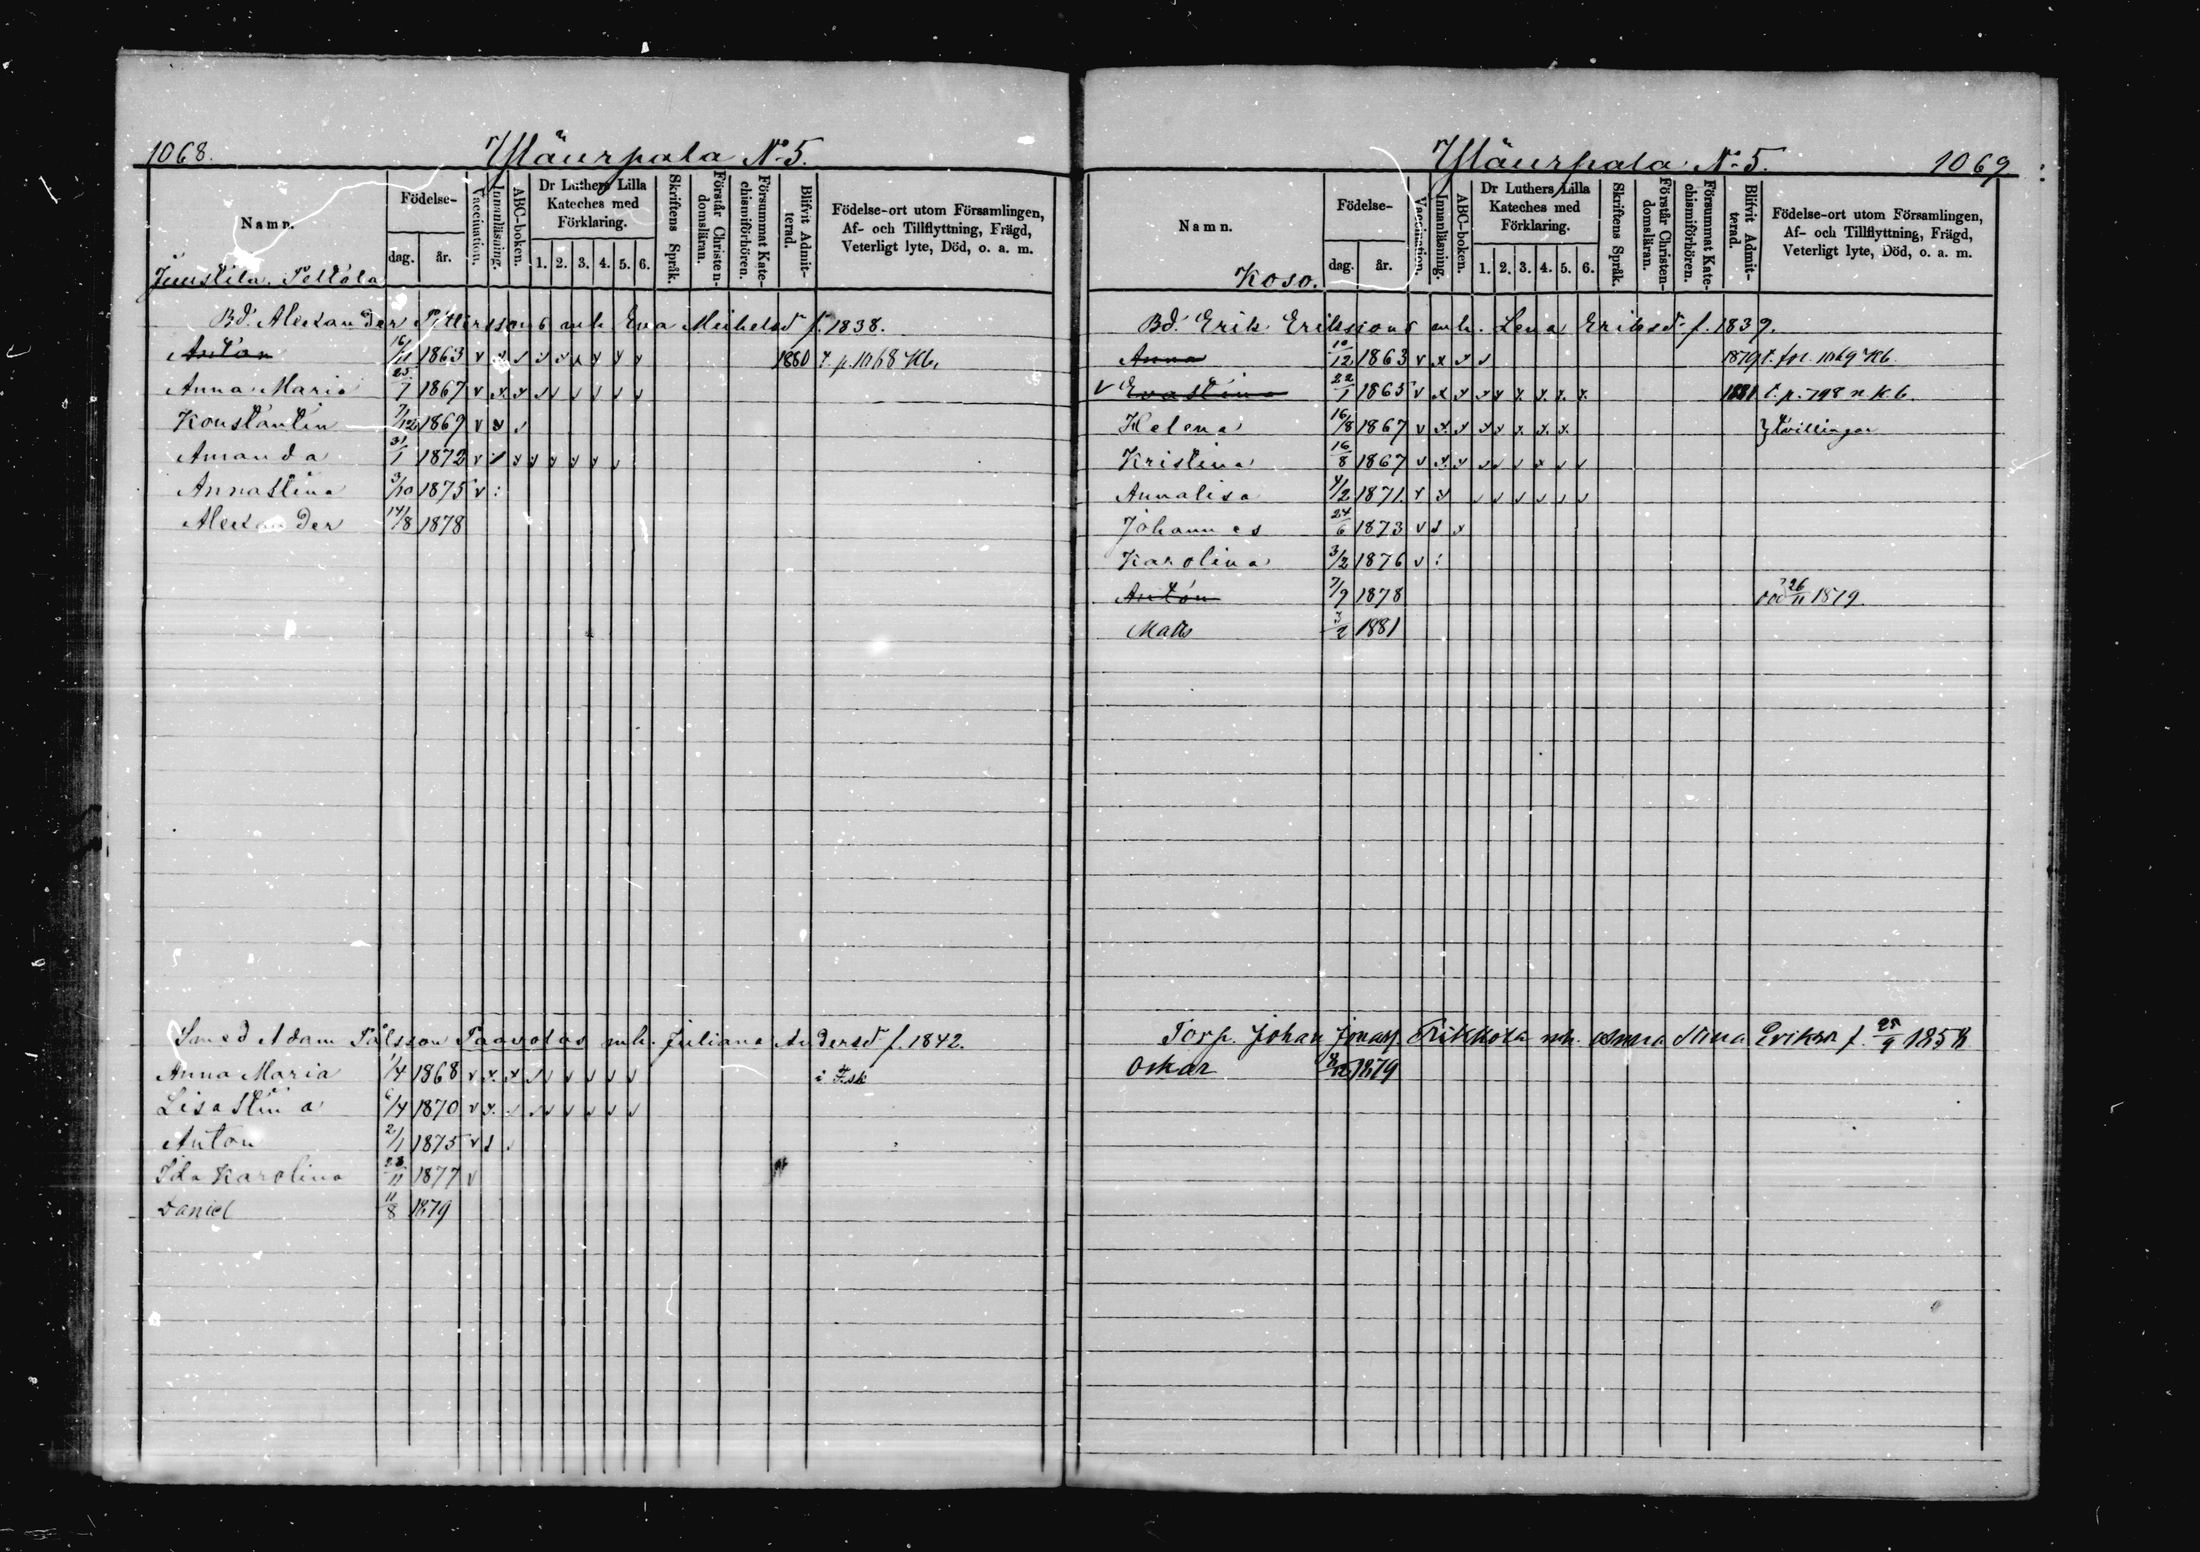 1068.
Yläurpala No 5.
Namn.
Födelse-
dag.
år.
Vaccination.
Innanläsning.
ABC-boken.
Dr Luthers Lilla Kateches med Förklaring.
1. 2. 3. 4. 5. 6.
Skriftens Språk.
Förstår Christendomsläran.
Försummat Katechismiförhören.
Blifvit Admitterad.
Födelse-ort utom Församlingen,
Af- och Tillflyttning, Frägd,
Veterligt lyte, Död, o. a. m.
Juustila. Peltola
Bd. Alexander Pettersons enk Eva Mickelsd f. 1838.
Anton 16/11 1863 v x x x x x x x x 1880 t. p. 1068 Kb.
Anna Maria 25/7 1867 v x x v v v v v v
Konstantin 7/12 1869 v x v
Amanda 31/1 1872 v x x x x x x v
Annastina 3/10 1875 v :
Alexander 14/8 1878
Smed Adam Pålsson Paavolas enk. Juliana Andersd f. 1842.
Anna Maria 1/4 1868 v x x v v v v v v i Fsk
Lisastina 6/4 1870 v x v v v v v v v
Anton 2/1 1875 v 1
Ida Karolina 23/11 1877 v
Daniel 11/8 1879
Yläurpala No 5.
1069
Namn.
Födelse-
dag.
år.
Vaccination.
Innanläsning.
ABC-boken.
Dr Luthers Lilla Kateches med Förklaring.
1. 2. 3. 4. 5. 6.
Skriftens Språk.
Förstår Christendomsläran.
Försummat Katechismiförhören.
Blifvit Admitterad.
Födelse-ort utom Församlingen,
Af- och Tillflyttning, Frägd,
Veterligt lyte, Död, o. a. m.
Koso.
Bd. Erik Erikssons enk. Lena Eriksd f. 1839.
Anna 10/12 1863 v x x v 1879 t. fol. 1069 Kb.
v Evastina 22/1 1865 v x x x x x x x x 1881 t. p. 798 n. k. b.
Helena 16/8 1867 v x x x x x x x } tvillingar
Kristina 16/8 1867 v x x v v v x v v
Annalisa 4/2 1871. v x v v v v v v
Johannes 24/6 1873 v 1 x
Karolina 3/2 1876 v :
Anton 7/9 1878 död 26/11 1879.
Matts 3/2 1881
Torp. Johan Jonass Rikkola enk. Anna Stina Eriksd f. 25/9 1858
Oskar 1879